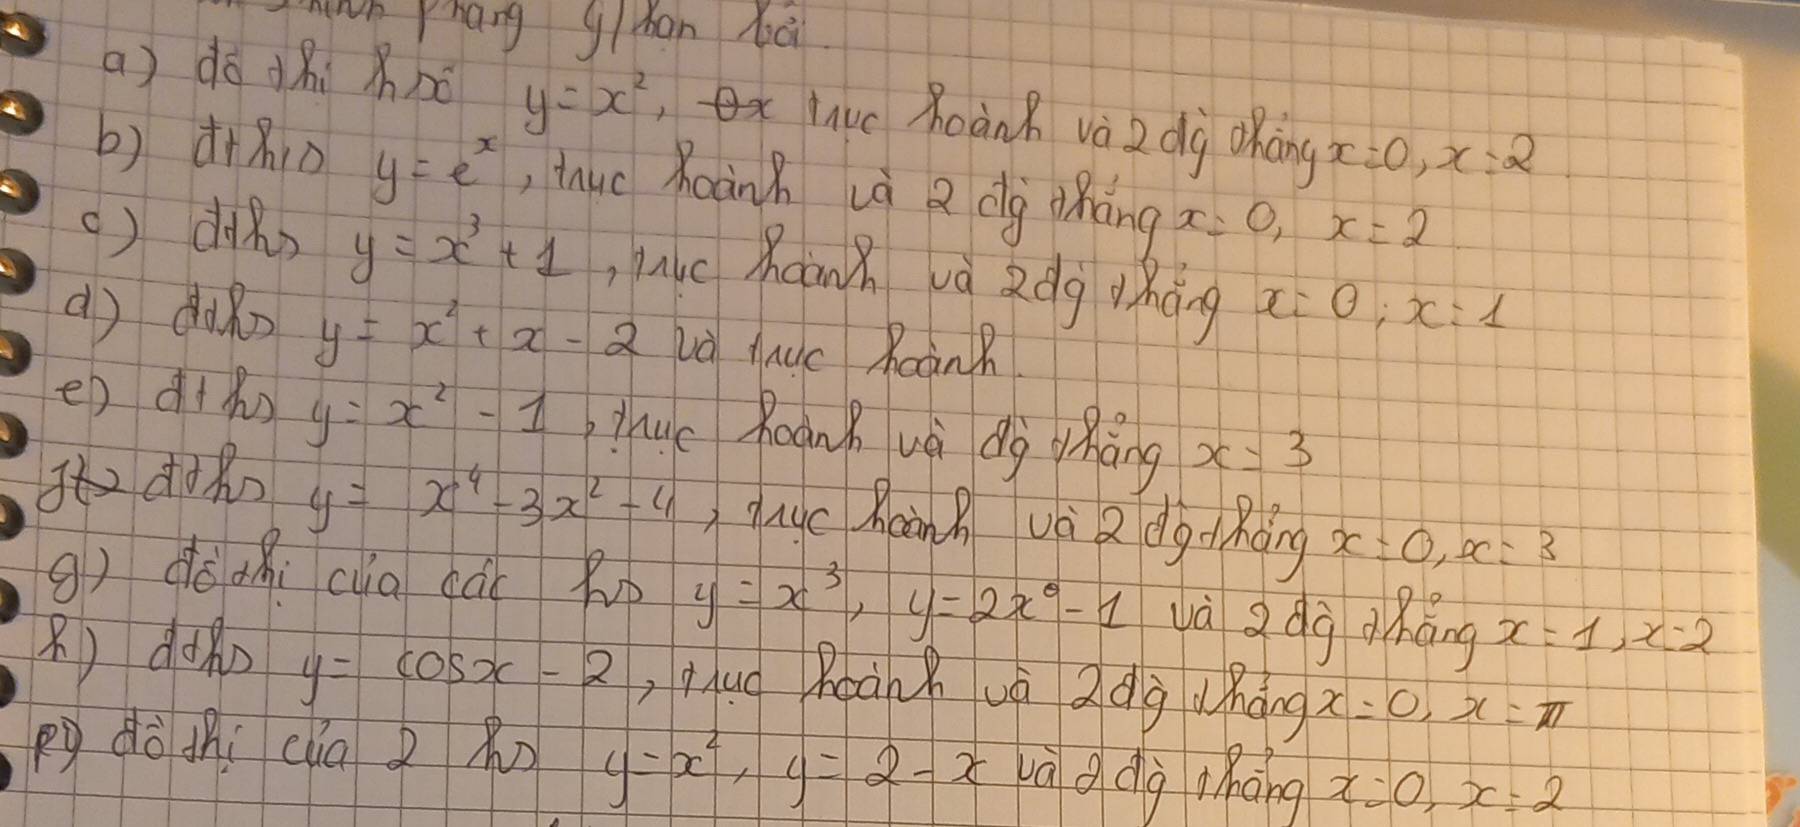 hình phẳng g/hạn bởi.
a) đồ thị h số y = x², trục hoành và 2 đg thẳng x = 0, x = 2
b) đths y = eˣ, trục hoành và 2 đg thẳng x = 0, x = 2
c) đths y = x³ + 1, trục hoành và 2 đg thẳng x = 0; x = 1
d) đths y = x² + x - 2 và trục hoành.
e) đths y = x² - 1, trục hoành và đg thẳng x = 3
đths y = x⁴ - 3x² - 4, trục hoành và 2 đg thẳng x = 0, x = 3
g) đồ thị của các hs y = x³, y = 2x - 1 và 2 đg thẳng x = 1, x = 2
h) đths y = cosx - 2, trục hoành và 2 đg thẳng x = 0, x = π
đồ thị của 2 hs y = x², y = 2 - x và 2 đg thẳng x = 0, x = 2